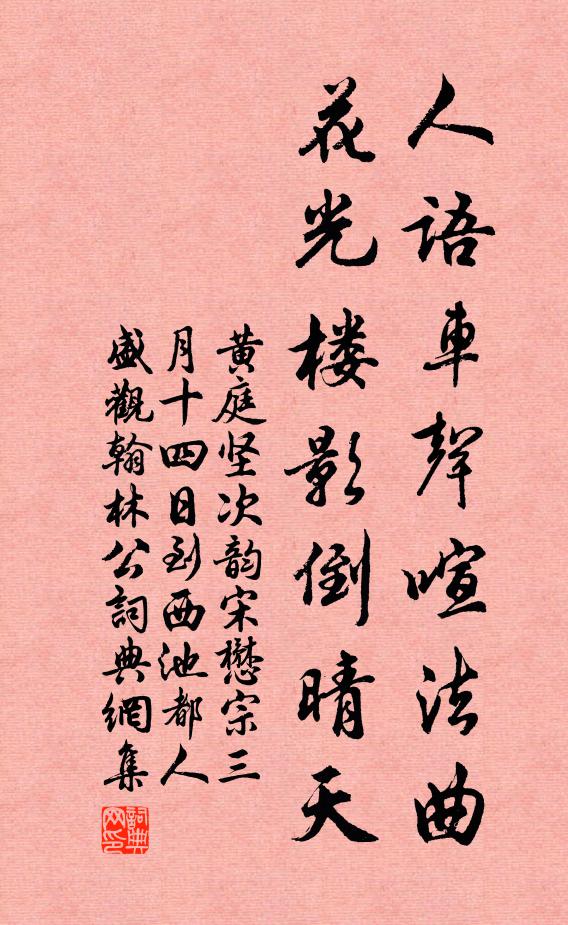 人語車聲喧法曲
花光楼影倒晴天
黄庭坚次韵宋懋宗三
月十四日到西池都人
盛觀翰林公詞典網集
詞典网印